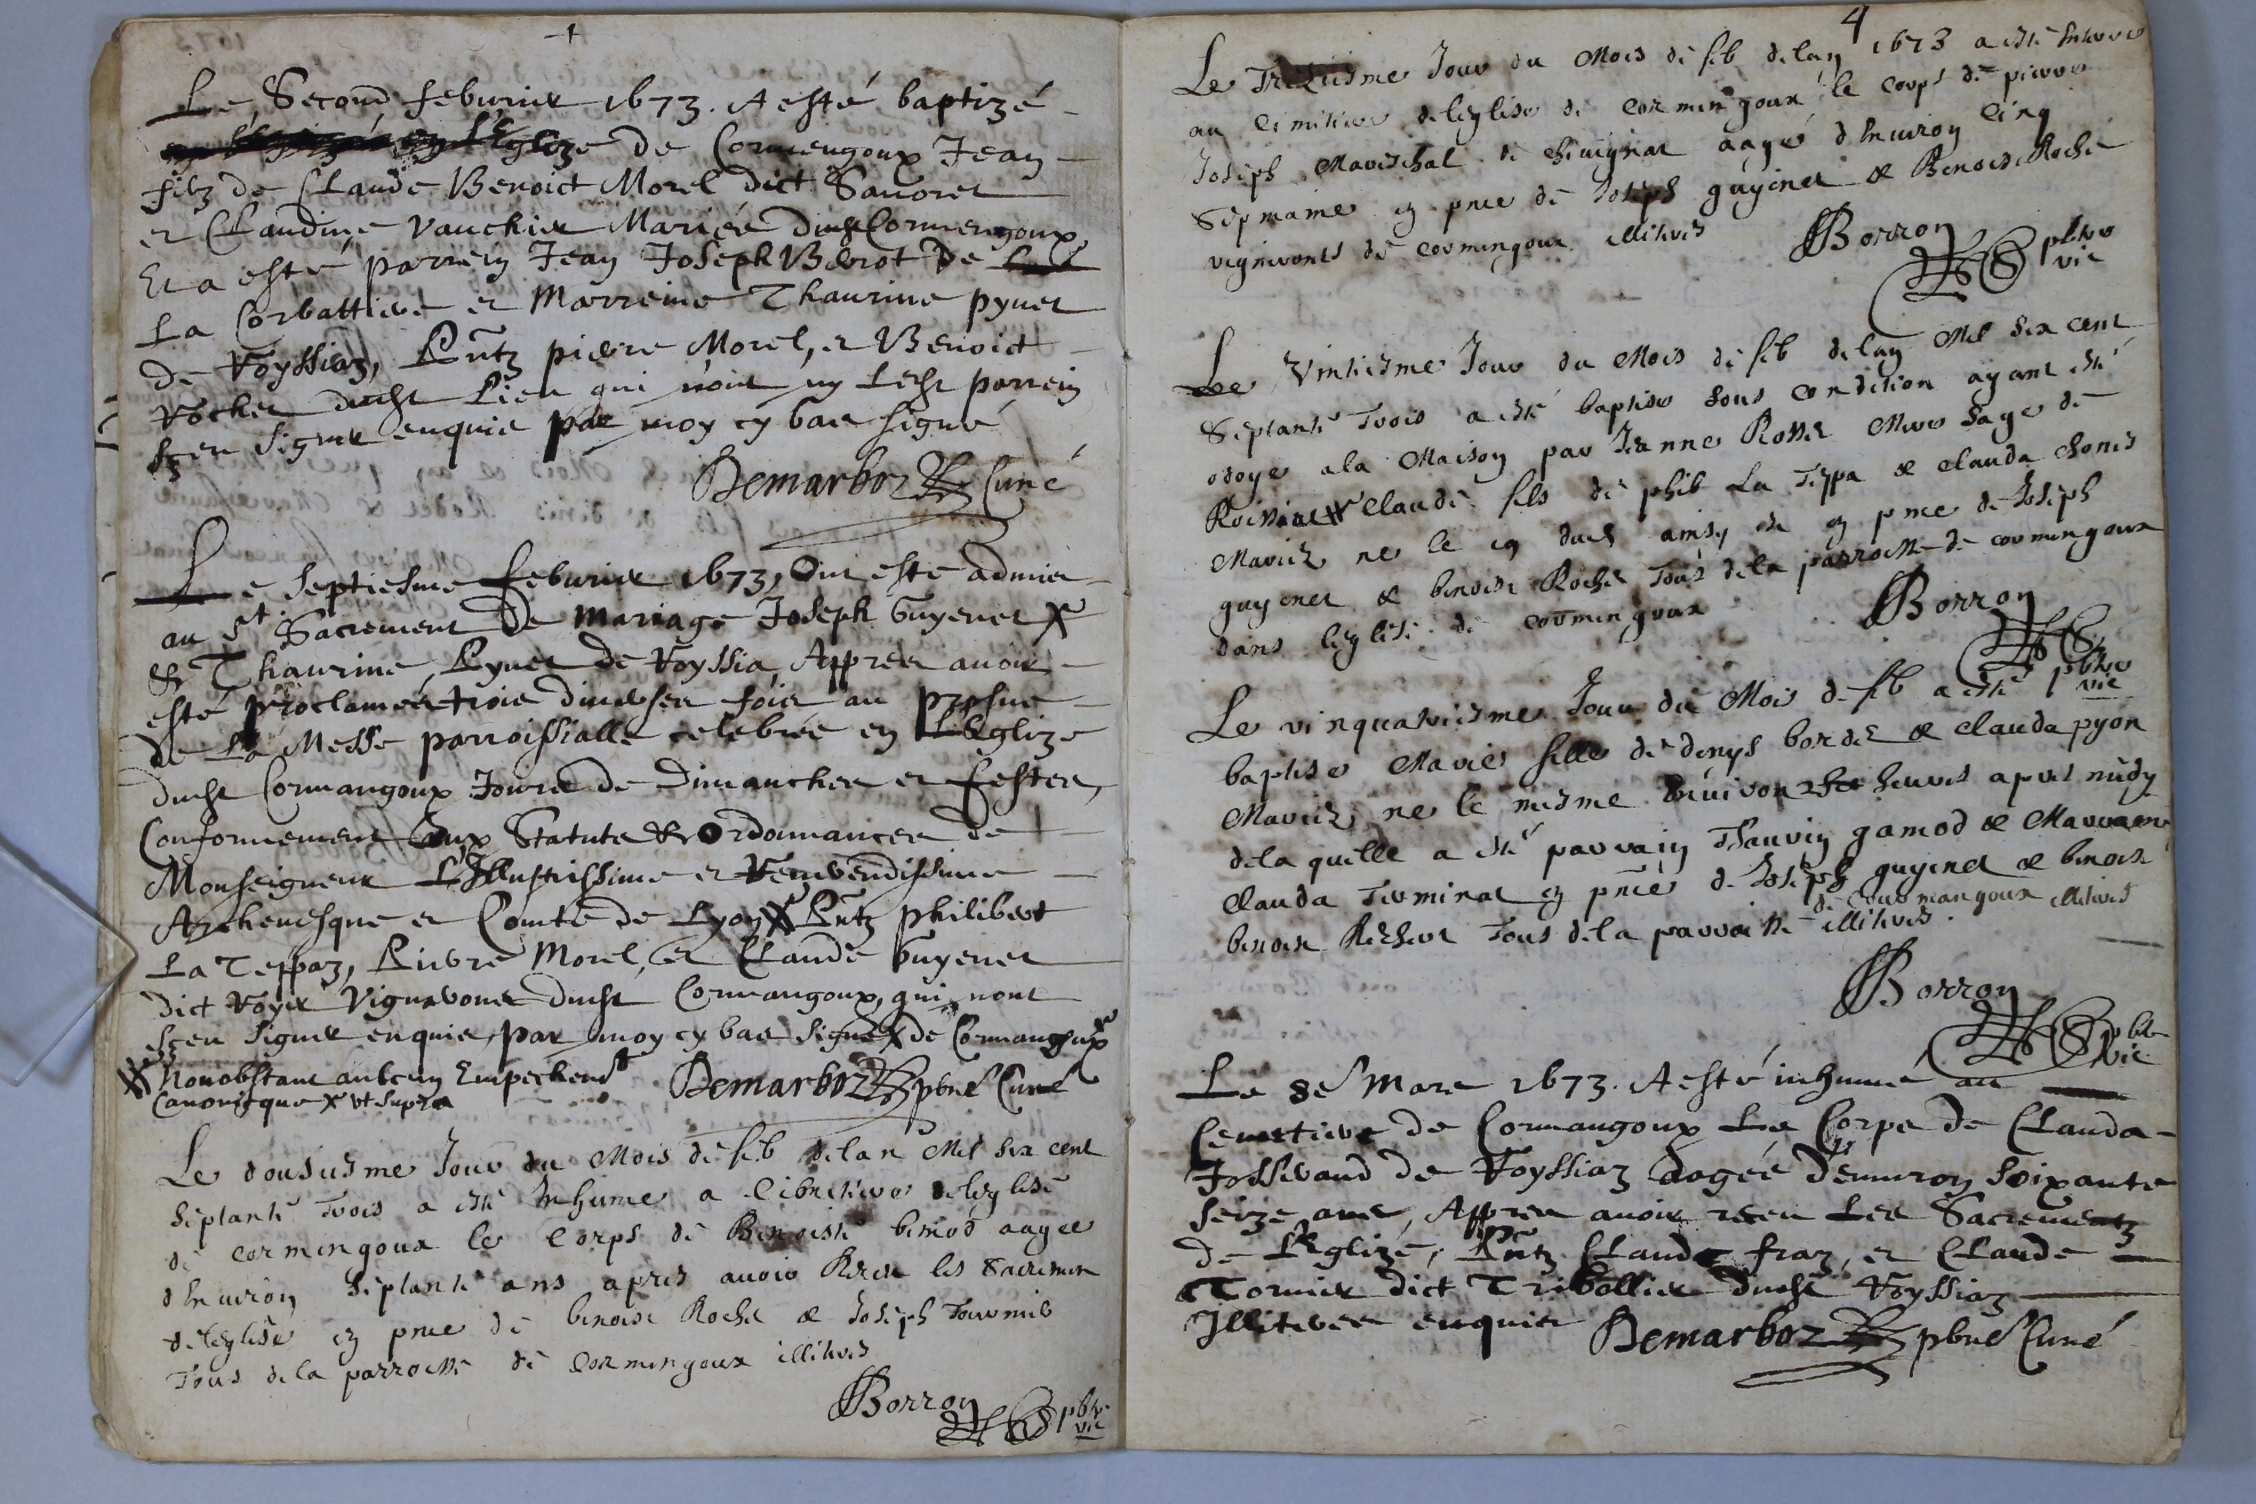 Le Second feburier 1673. A esté baptizé
en l'Eglize de Cormengoux Jean
filz de Claude Benoict Morel dict Sauoret
et Claudine Vauchier Mariés dudt Cormengoux
Et a esté parrein Jean Joseph Bertot de
La Corbattiere et Marreine Thaurine pynet
de Royssiaz, Pntz pierre Morel, et Benoict
Rochet dudt Lieu qui n'ont ny ledt parrein
sceu signer enquis par moy cy bas signé
Demarboz Curé
Le septiesme feburier 1673, Ont esté admis
au st Sacrement de Mariage Joseph Guyenet
& Thaurine Pynet de Royssia, Appres auoir
esté proclamés trois diuerses fois au prosne
de La Messe parroissialle celebrée en L'Eglize
dudt Cormangoux Jours de Dimanches et festes,
Conformement aux Statuts & Ordonnances de
Monseigneur L'Illustrissime et Reuerendissime
Archeuesque et Comte de Lyon X Pntz philibert
La Teppaz, Pierre Morel, et Claude Guyenet
dict Royer Vignerons dudt Cormangoux, qui n'ont
sceu signer enquis, par moy cy bas signé X de Cormangoux
X Nonobstant aulcun Empechemt
Canonique X vt supra
Demarboz pbre Curé
Le dousiesme Jour du Mois de feb de lan Mil six cent
septante trois a esté Inhume a Cimetiere de leglise
de cormengoux le Corps de Benoiste bemod aagee
dEnuiron septante ans apres auoir Receu les Sacremen
de leglise en pnce de benoist Rochet & Joseph Tournier
Tous de la parroesse de cormengoux illiteres
Borron pbre vic
4
Le Treziesme Jour du Mois de feb de lan 1673 a esté Enterre
au Cimitiere de leglise de cormengoux le corps de pierre
Joseph Mareschal de cheuignat aagé dEnuiron Cinq
Sepmaine en pnce de Joseph guyenet & Benoist Rochet
vignerons de cormengoux illiteres
Borron pbtre vic
Le Vintiesme Jour du Mois de feb de lan Mil six cent
Septante Trois a esté baptise sous condition ayant esté
odoye a la Maison par Jeanne Rosset Mere sage de
Roissiat X Claude fils de phib La Teppa & clauda chones
Mariez ne le en dudt ainsy en pnce de Joseph
guyenet & benoist Rochet Tous de la parroesse de cormengoux
dans leglise de cormengoux
Borron pbtre vic
Le vinquatriesme Jour du Mois de feb a esté
baptise Marie fille de denys bordet & clauda pyon
Mariez ne le mesme Enuiron heures apres midy
de la quelle a esté parrain Thaurin gamod & Marraine
clauda Terminat en pnce de Joseph guyenet & benoist
benoist Rochet Tous de la parroisse de cormangoux illiteres
illiteres
Borron pbtre vic
Le 8e Mars 1673. A esté inhumé au
Cemetiere de Cormangoux Le Corps de Clauda
Josserand de Royssiaz aagée d'enuiron soixante
seize ans, Appres auoir receu Les Sacrementz
de L'Eglize, Pntz Claude fraz, et Claude
Tornier dict Tribollier dudt Royssiaz
Illiteres enquis
Demarboz pbre Curé